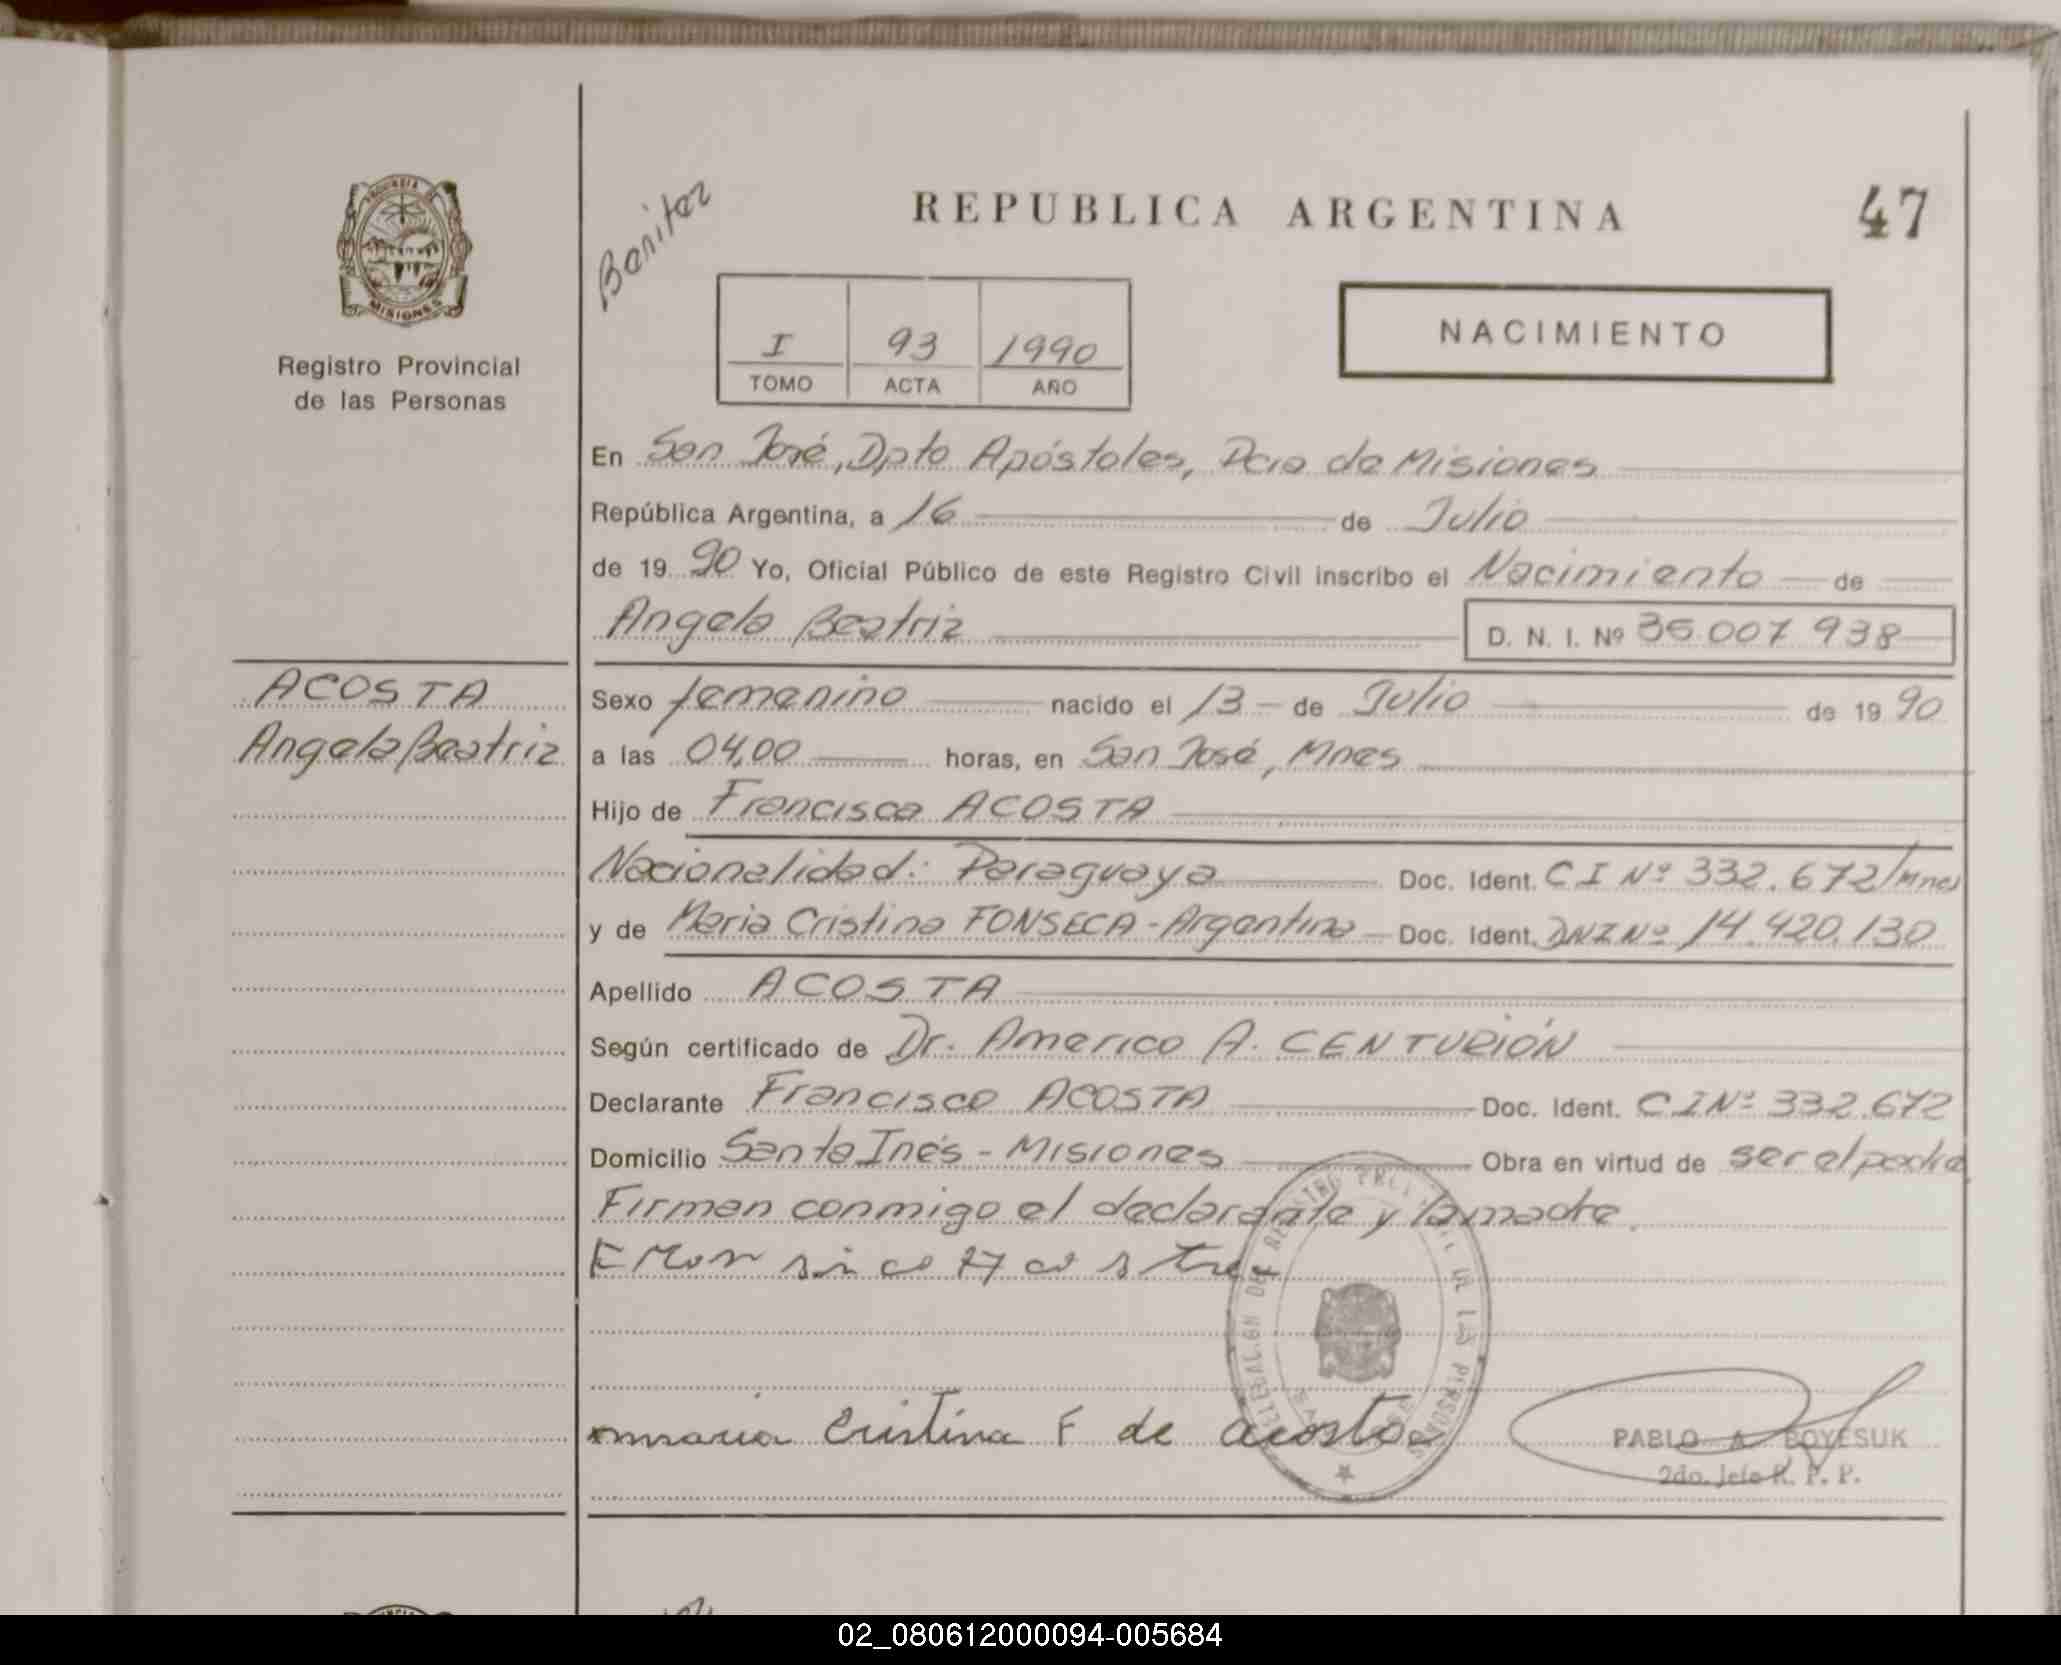 REPUBLICA ARGENTINA
47
Benitez
PROVINCIA DE
MISIONES
Registro Provincial
de las Personas
I 93 1990
TOMO ACTA AÑO
NACIMIENTO
En San José, Dpto Apóstoles, Pcia de Misiones
República Argentina, a 16 de Julio
de 19 90 Yo, Oficial Público de este Registro Civil inscribo el Nacimiento de
Angela Beatriz D. N. I. Nº 35.007.938
ACOSTA
Angela Beatriz
Sexo femenino nacido el 13 de Julio de 19 90
a las 04,00 horas, en San José, Mnes
Hijo de Francisco ACOSTA
Nacionalidad: Paraguaya Doc. Ident. C I Nº 332.672/Mnes
y de Maria Cristina FONSECA - Argentina Doc. Ident. DNI Nº 14.420.130
Apellido ACOSTA
Según certificado de Dr. Americo A. CENTURIÓN
Declarante Francisco ACOSTA Doc. Ident. C I Nº 332.672
Domicilio Santa Inés - Misiones Obra en virtud de ser el padre
Firman conmigo el declarante y la madre.
maria Cristina F de acosta
PABLO A. BOYESUK
2do. Jefe R. P. P.
02_080612000094-005684